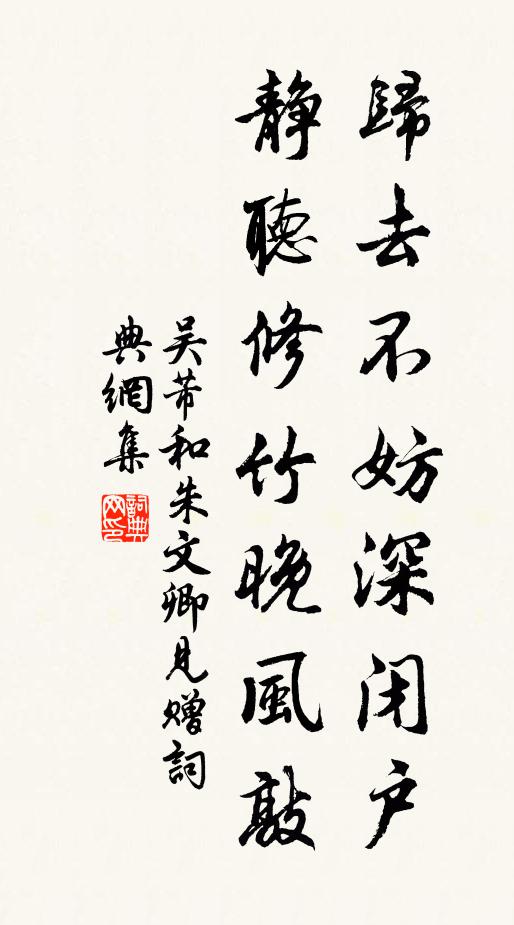 歸去不妨深闭户
静聽修竹晚風敲
吴芾和朱文卿見赠詞
典網集
詞典网印